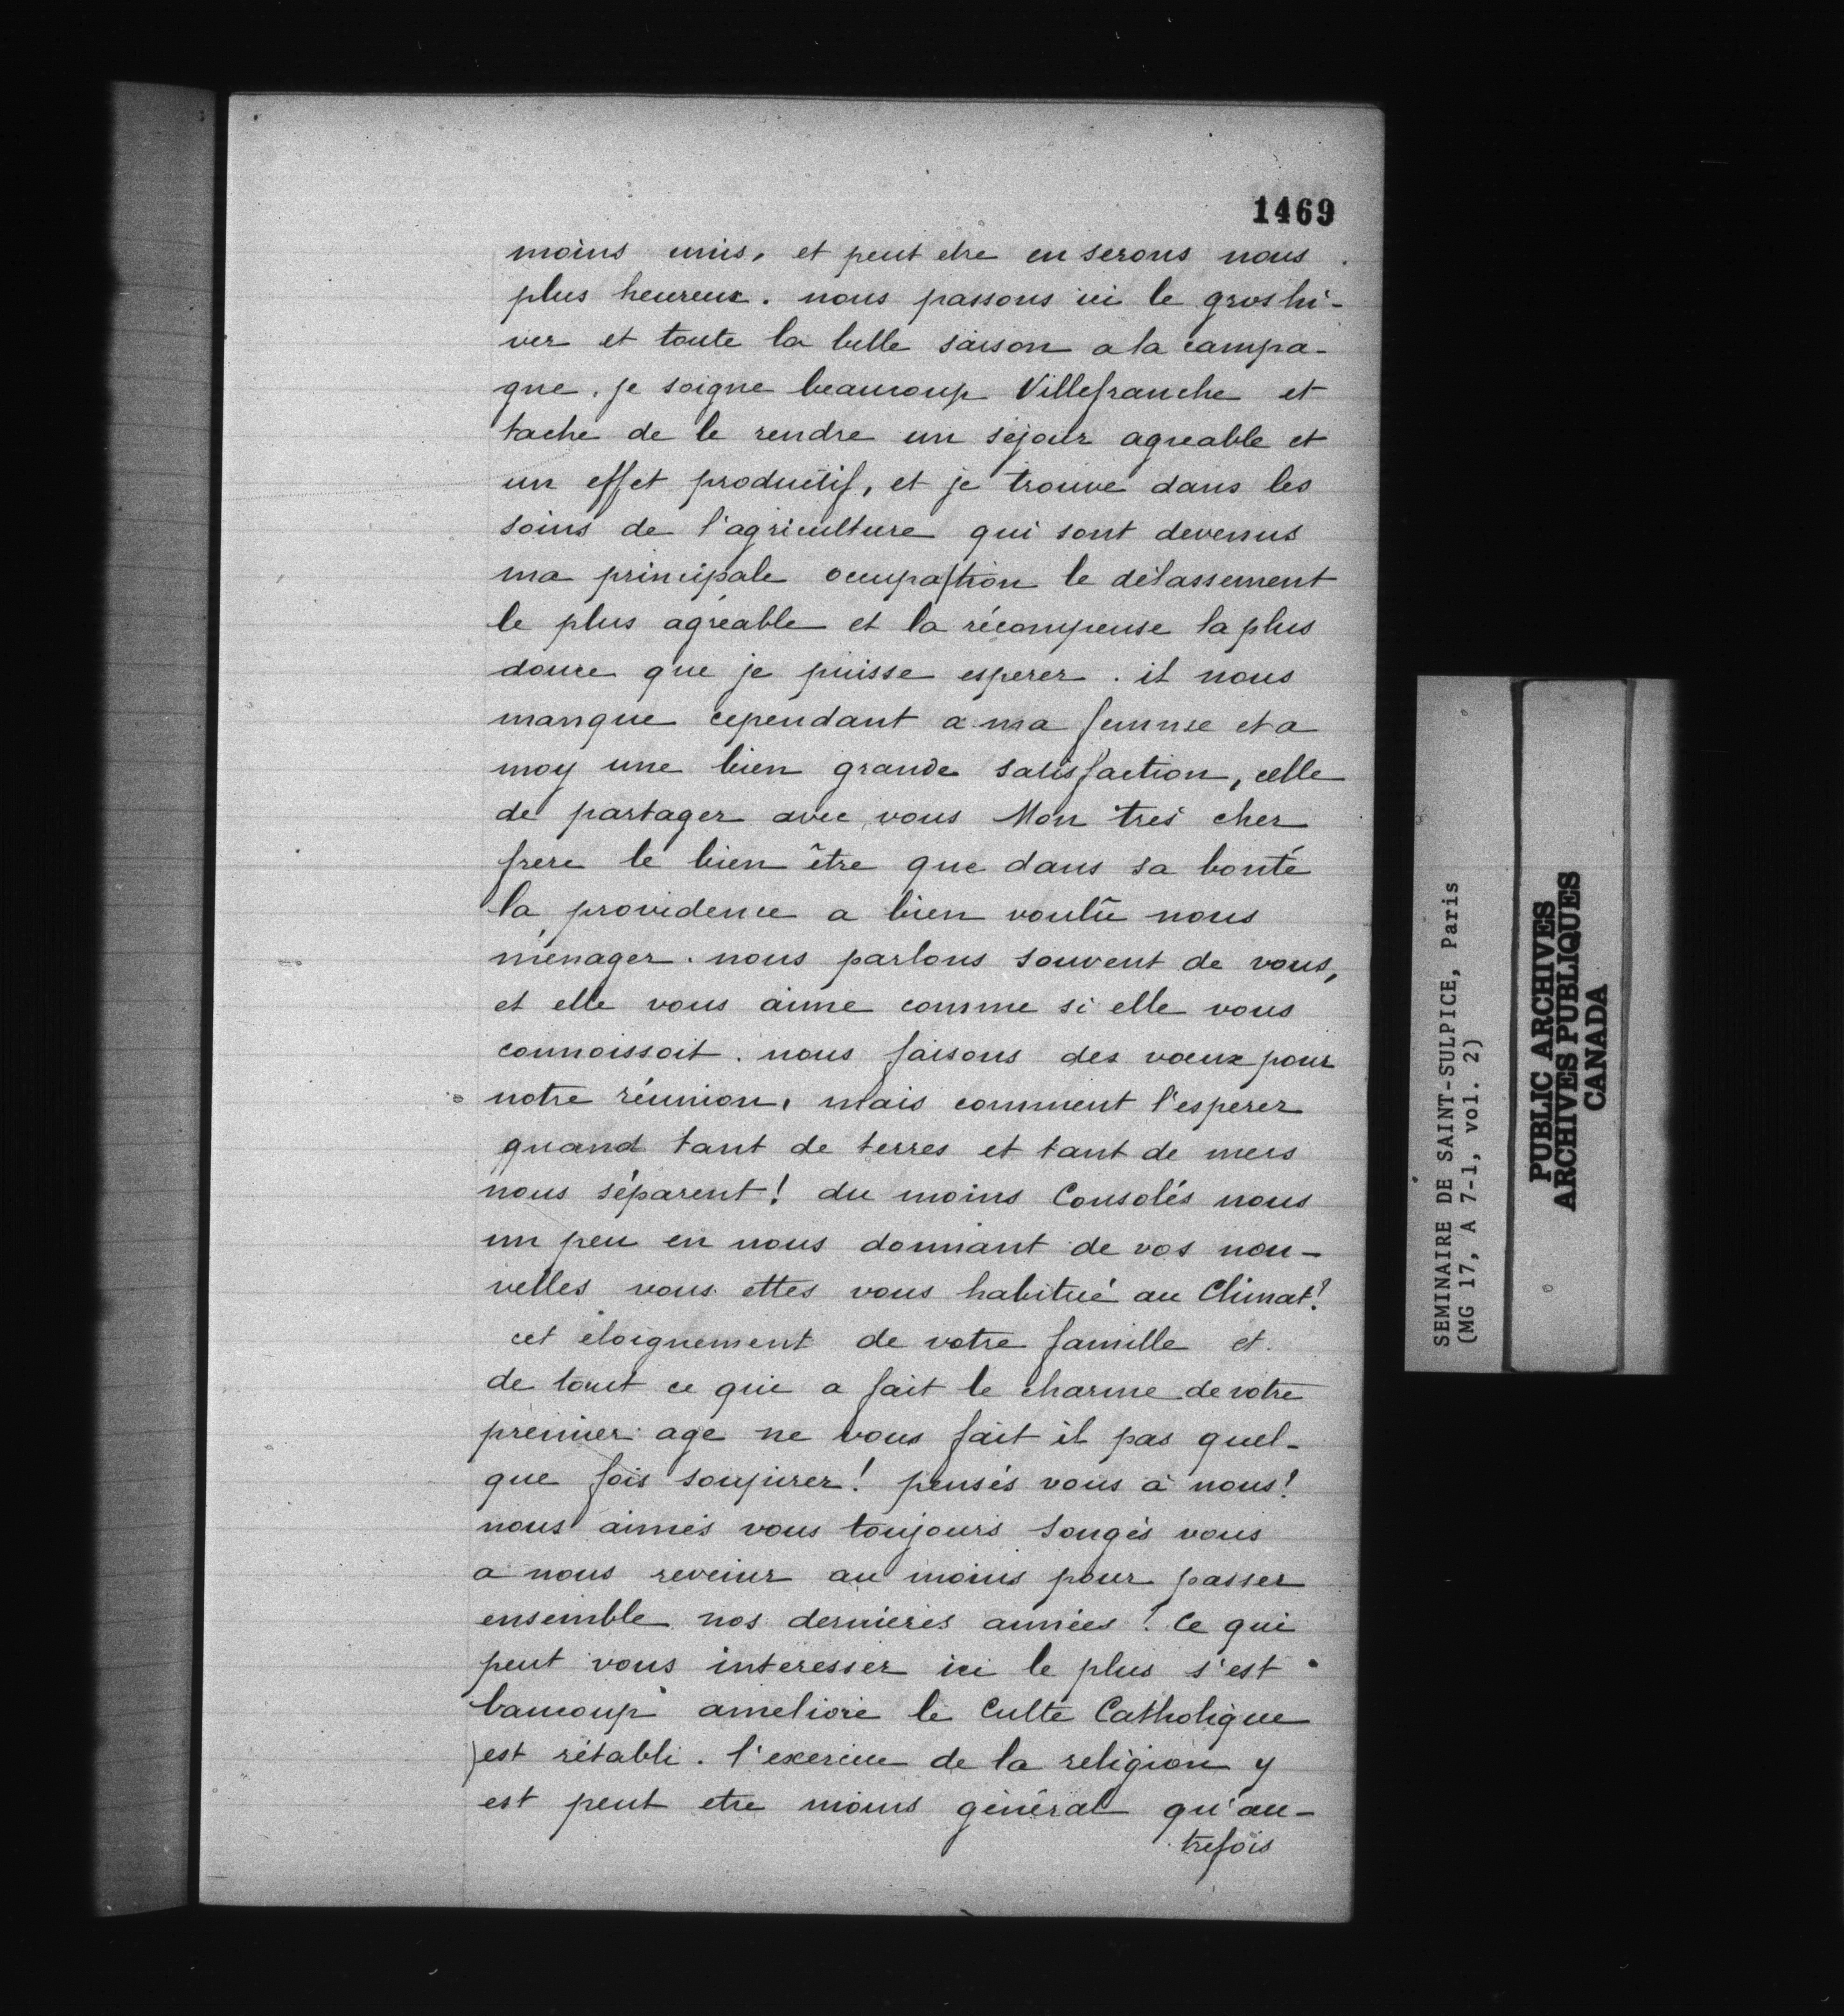 1469
moins unis, et peut etre en serons nous
plus heureux. nous passons ici le gros hi-
ver et toute la belle saison a la campa-
gne. je soigne beaucoup Villefranche et
tache de le rendre un sejour agreable et
un effet productif, et je trouve dans les
soins de l'agriculture qui sont devenus
ma principale occupation le délassement
le plus agréable et la récompense la plus
douce que je puisse esperer. il nous
manque cependant a ma femme et a
moy une bien grande satisfaction, celle
de partager avec vous Mon tres cher
frere le bien être que dans sa bonté
la providence a bien voulû nous
ménager. nous parlons souvent de vous,
et elle vous aime comme si elle vous
connoissoit. nous faisons des vœux pour
notre réunion, mais comment l'esperer
quand tant de terres et tant de mers
nous séparent! du moins Consolés nous
un peu en nous donnant de vos nou-
velles vous ettes vous habitué au Climat?
cet éloignement de votre famille et
de tout ce qui a fait le charme de votre
premier age ne vous fait il pas quel-
que fois soupirer! pensés vous à nous?
nous aimés vous toujours songés vous
a nous revenir au moins pour passer
ensemble nos dernieres années? Ce qui
peut vous interesser ici le plus s'est
baucoup amelioré le Culte Catholique
est rétabli. l'exercice de la religion y
est peut etre moins général qu'au-
trefois
SEMINAIRE DE SAINT-SULPICE, Paris
(MG 17, A 7-1, vol. 2)
PUBLIC ARCHIVES
ARCHIVES PUBLIQUES
CANADA